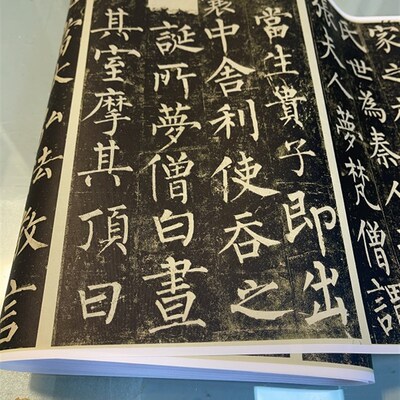 家之
氏世為秦人
張夫人夢梵僧謂
當生貴子即出
囊中舍利使吞之
誕所夢僧白晝
其室摩其頂曰
當大弘法教言